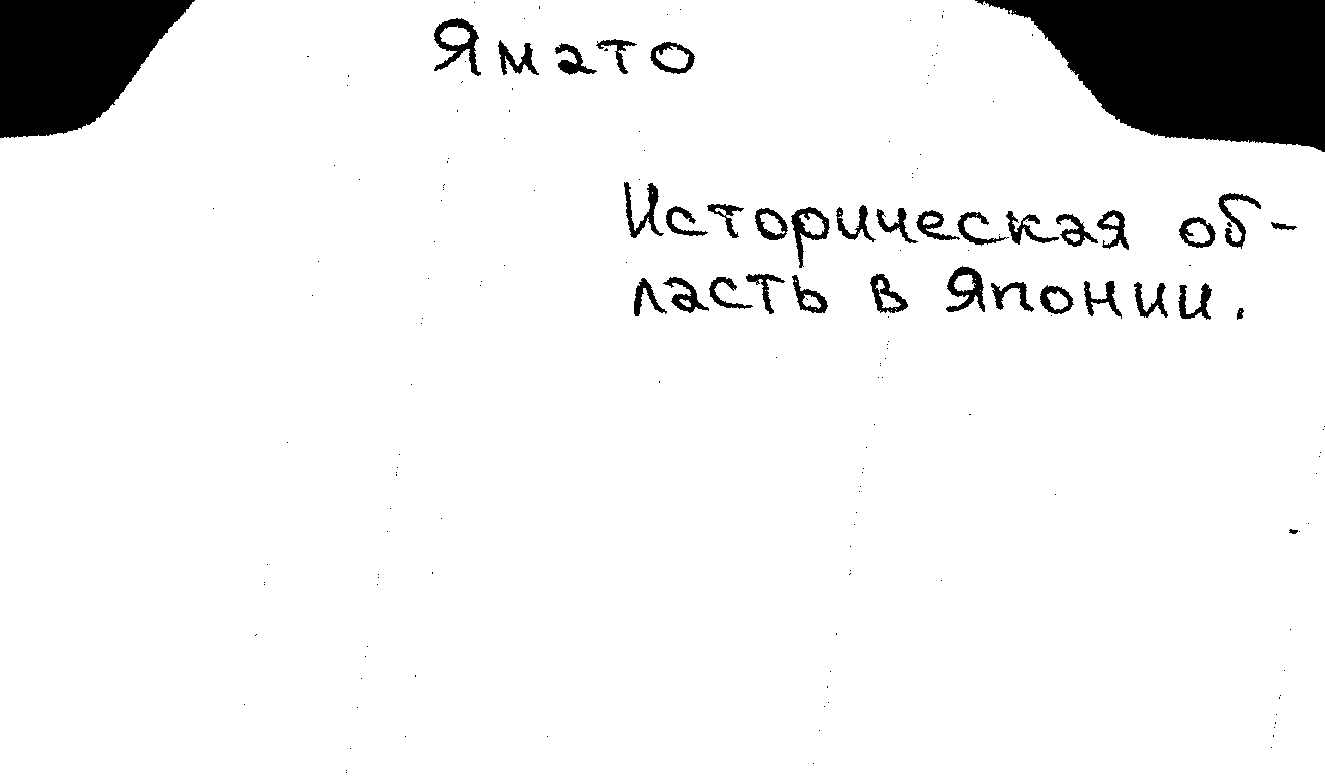 Ямато
Историческая об-
ласть в Японии.